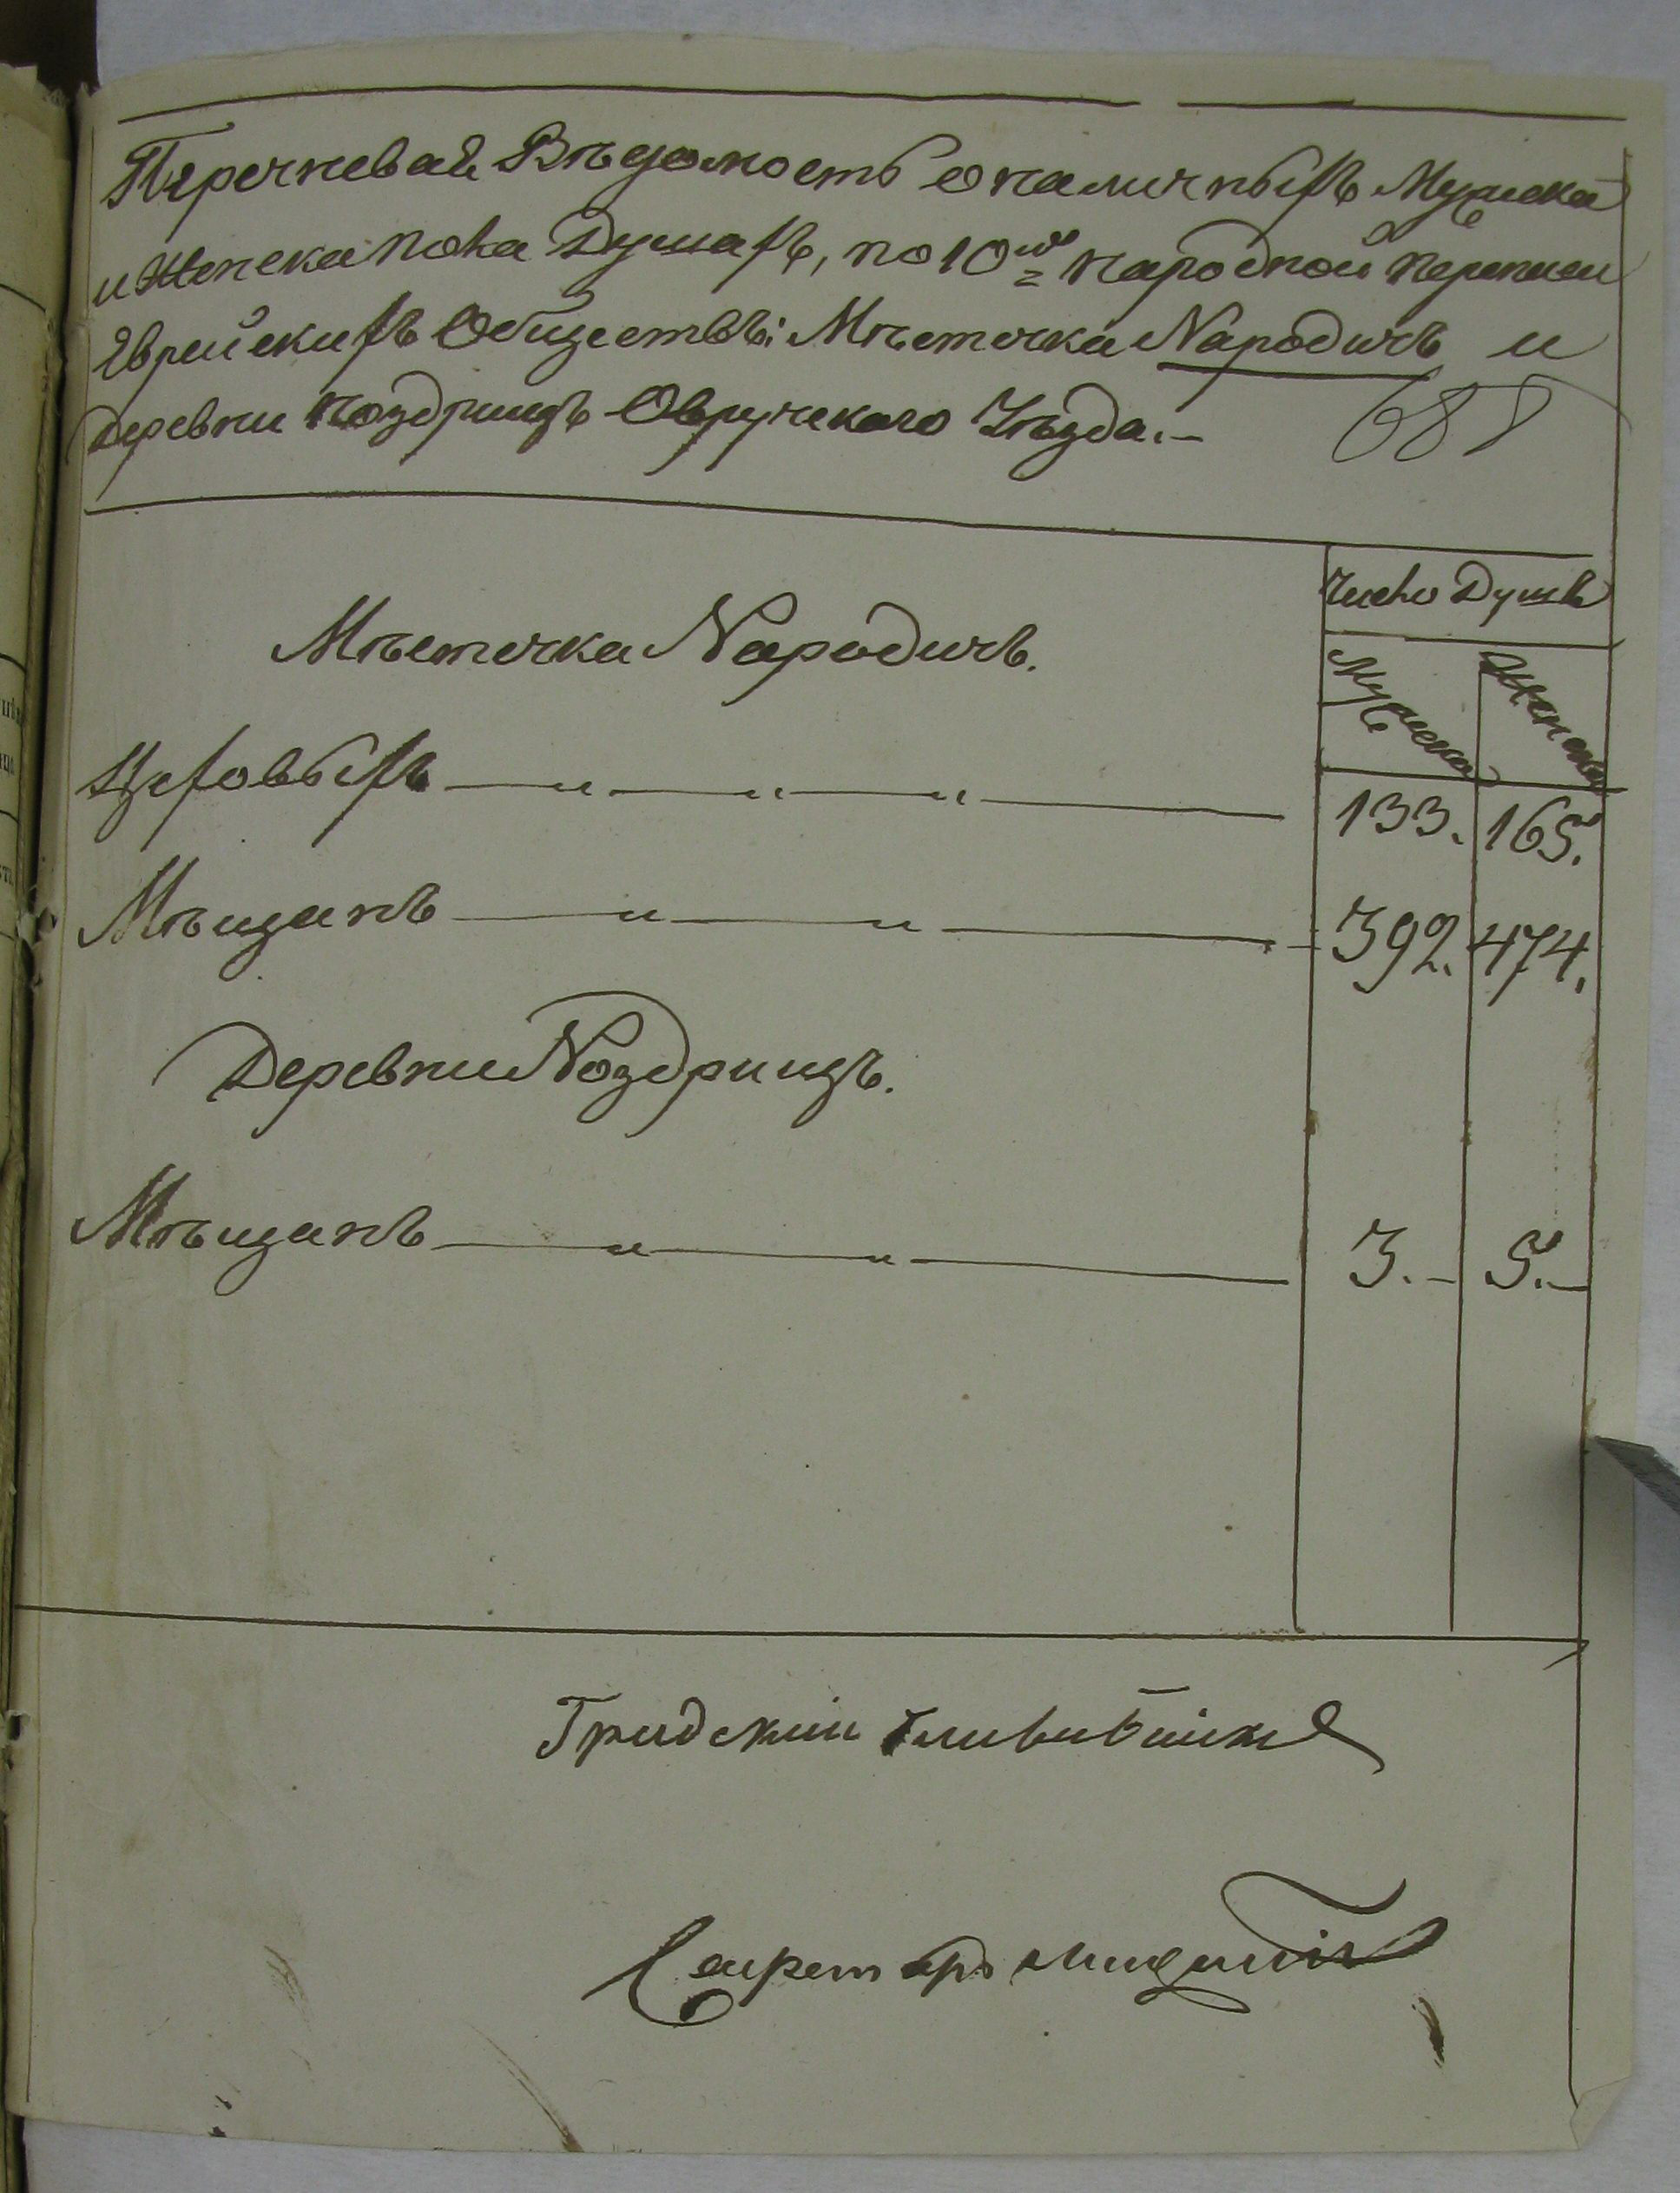 Перечневая Вѣдомость о наличныхъ Мужеска
и Женска пола Душахъ, по 10й народной переписи
Еврейскихъ Обществъ: Мѣстечка Народичъ и
деревни Ноздрищъ Овручскаго Уѣзда.-
688
Число Душъ
Мужеска Женска
Мѣстечка Народичъ.
Цеховыхъ 133. 165.
Мѣщанъ 392. 474.
Деревни Ноздрищъ.
Мѣщанъ 3.- 5.-
Градскій
Секретарь